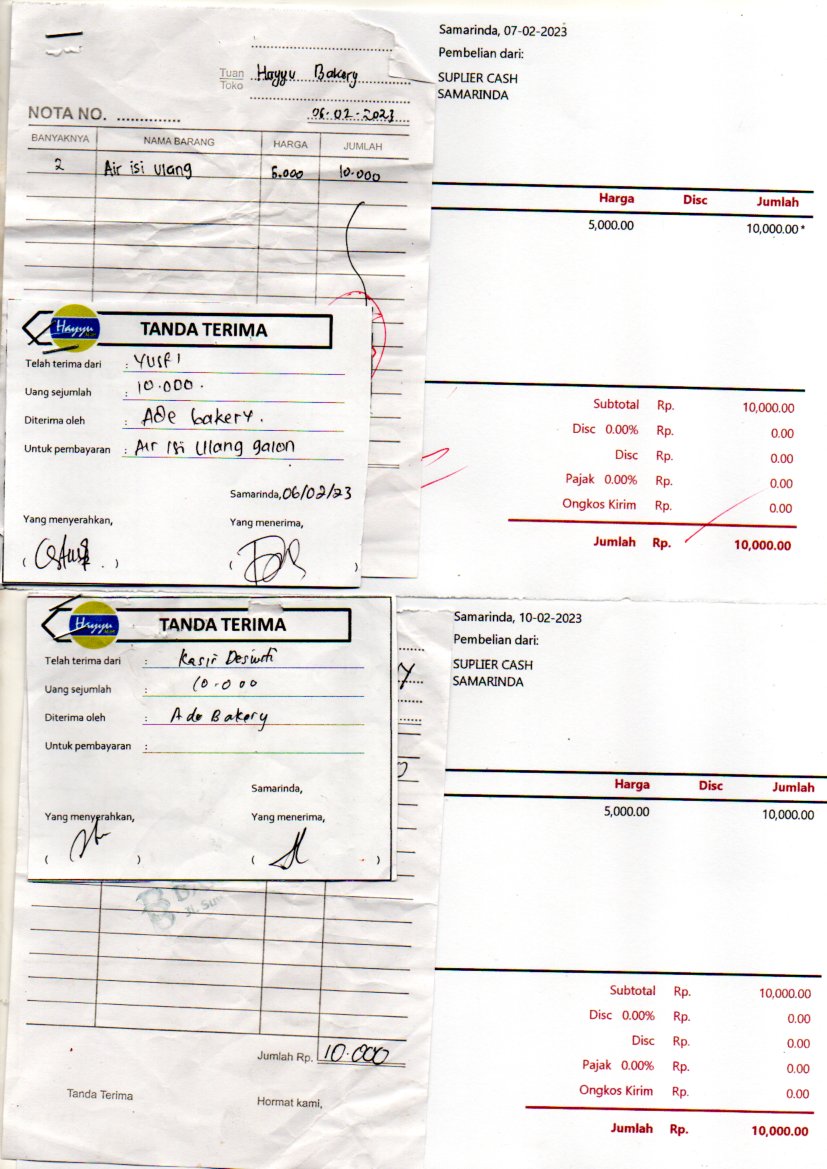 Samarinda, 07-02-2023
Pembelian dari:
SUPLIER CASH
SAMARINDA
Tuan Hayyu Bakery
Toko
NOTA NO. 06-02-2023
BANYAKNYA NAMA BARANG HARGA JUMLAH
2 Air isi ulang 5.000 10.000
Harga Disc Jumlah
5,000.00 10,000.00 *
Hayyu
TANDA TERIMA
Telah terima dari : YUSRI
Uang sejumlah : 10.000.
Diterima oleh : Ade bakery.
Untuk pembayaran : Air isi Ulang galon
Samarinda, 06/02/23
Yang menyerahkan, Yang menerima,
Subtotal Rp. 10,000.00
Disc 0.00% Rp. 0.00
Disc Rp. 0.00
Pajak 0.00% Rp. 0.00
Ongkos Kirim Rp. 0.00
Jumlah Rp. 10,000.00
Hayyu
TANDA TERIMA
Telah terima dari : Kasir
Uang sejumlah : 10.000
Diterima oleh : Ade Bakery
Untuk pembayaran :
Samarinda,
Yang menyerahkan, Yang menerima,
Samarinda, 10-02-2023
Pembelian dari:
SUPLIER CASH
SAMARINDA
Harga Disc Jumlah
5,000.00 10,000.00
Jumlah Rp. 10.000
Tanda Terima Hormat kami,
Subtotal Rp. 10,000.00
Disc 0.00% Rp. 0.00
Disc Rp. 0.00
Pajak 0.00% Rp. 0.00
Ongkos Kirim Rp. 0.00
Jumlah Rp. 10,000.00